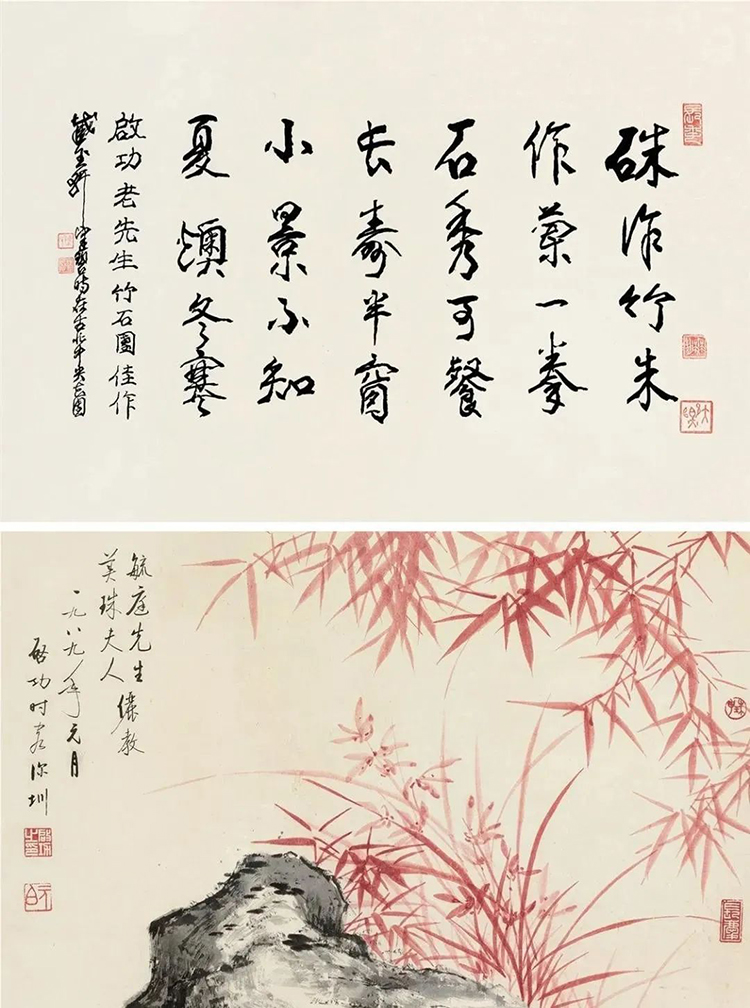 硃作竹朱
作蘭一拳
石秀可餐
长壽半窗
小景不知
夏燠冬寒
啟功老先生竹石圖佳作
時在
毓庭先生
美珠夫人
儷教
一九八九年元月
啟功时客深圳